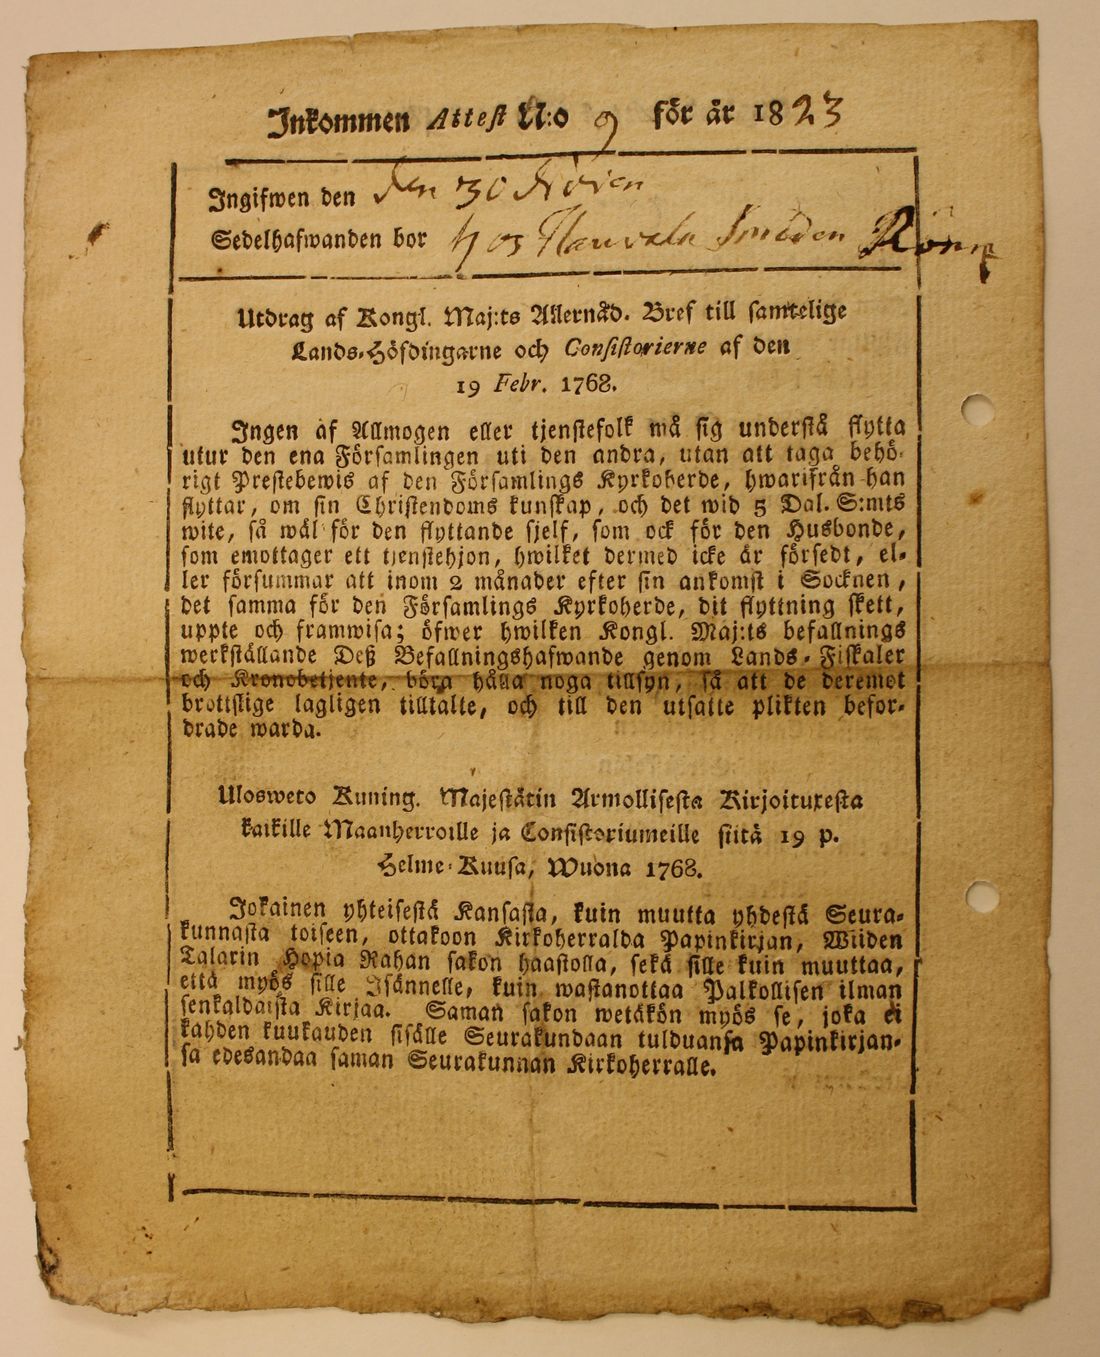 Inkommen Attest N:o 9 för år 1823
Ingifwen den den 30
Sedelhafwanden bor hos Smeden
Utdrag af Kongl. Maj:ts Allernåd. Bref till samtelige
Lands-Höfdingarne och Consistorierne af den
19 Febr. 1768.
Ingen af Allmogen eller tjenstefolk må sig understå flytta
utur den ena Församlingen uti den andra, utan att taga behö-
rigt Prestebewis af den Församlings Kyrkoherde, hwarifrån han
flyttar, om sin Christendoms kunskap, och det wid 5 Dal. S:mts
wite, så wäl för den flyttande sjelf, som ock för den Husbonde,
som emottager ett tjenstehjon, hwilket dermed icke är försedt, el-
ler försummar att inom 2 månader efter sin ankomst i Socknen,
det samma för den Församlings Kyrkoherde, dit flyttning skett,
uppte och framwisa; öfwer hwilken Kongl. Maj:ts befallnings
werkställande Deß Befallningshafwande genom Lands-Fiskaler
och Kronobetjente, böra hålla noga tillsyn, så att de deremot
brottslige lagligen tilltalte, och till den utsatte plikten befor-
drade warda.
Ulosweto Kuning. Majestätin Armollisesta Kirjoituxesta
kaikille Maanherroille ja Consistoriumeille siitä 19 p.
Helme-Kuusa, Wuona 1768.
Jokainen yhteisestä Kansasta, kuin muutta yhdestä Seura-
kunnasta toiseen, ottakoon Kirkoherralda Papinkirjan, Wiiden
Talarin Hopia Rahan sakon haastolla, sekä sille kuin muuttaa,
että myös sille Isännelle, kuin wastanottaa Palkollisen ilman
senkaldaista Kirjaa. Saman sakon wetäkön myös se, joka ei
kahden kuukauden sisälle Seurakundaan tulduansa Papinkirjan-
sa edesandaa saman Seurakunnan Kirkoherralle.